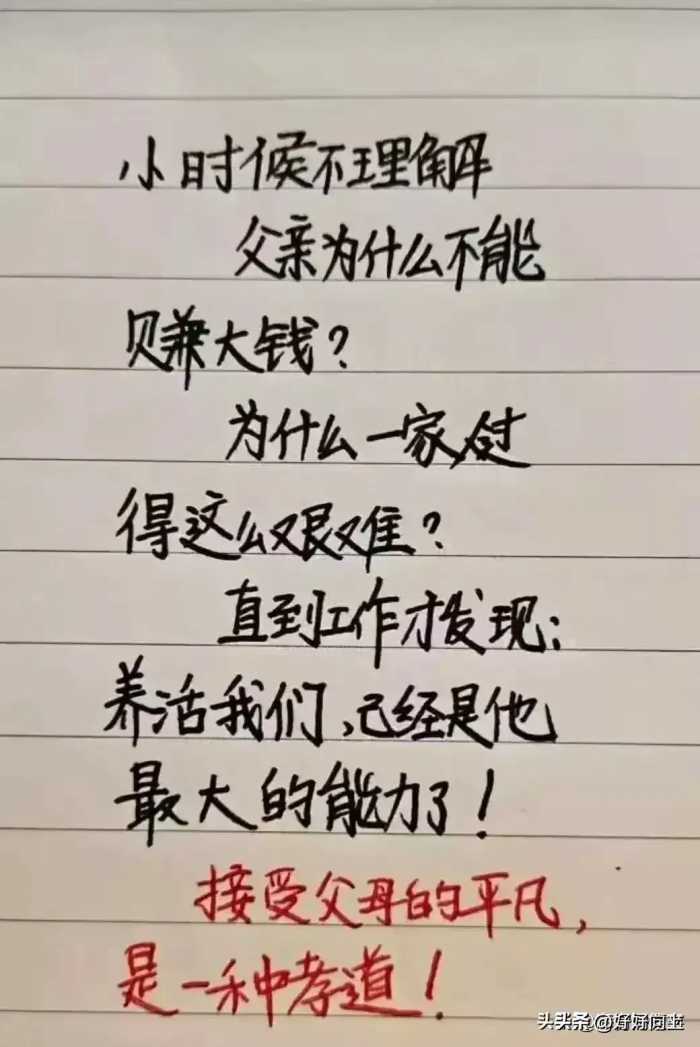 小时候不理解
父亲为什么不能
赚大钱？
为什么一家人过
得这么艰难？
直到工作才发现：
养活我们、已经是他
最大的能力了！
接受父母的平凡，
是一种孝道！
头头条@好好向